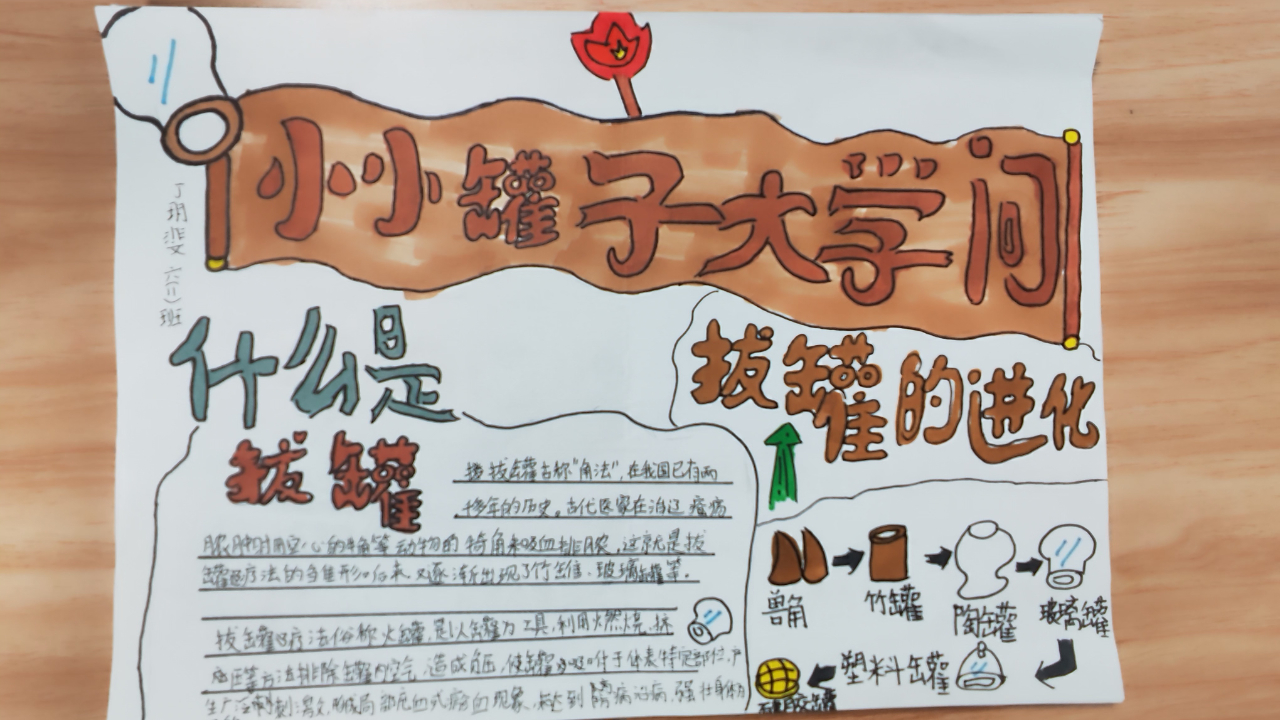 小小罐子大学问
丁玥
六(二)班
什么是
拔罐
拔罐古称"角法",在我国已有两
千多年的历史。古代医家在治疗疮疡
脓肿时用空心的 等动物的犄角来吸血排脓,这就是拔
罐疗法的 形。后来,又逐渐出现了竹罐、玻璃罐等。
拔罐疗法俗称火罐,是以罐为工具,利用燃烧、挤
压等方法排除罐内空气,造成负压,使罐吸附于体表特定部位,产
生广泛刺激,形成局部充血或瘀血现象,达到防病治病,强壮身体
拔罐的进化
兽角
竹罐
陶罐
玻璃罐
塑料罐
硅胶罐